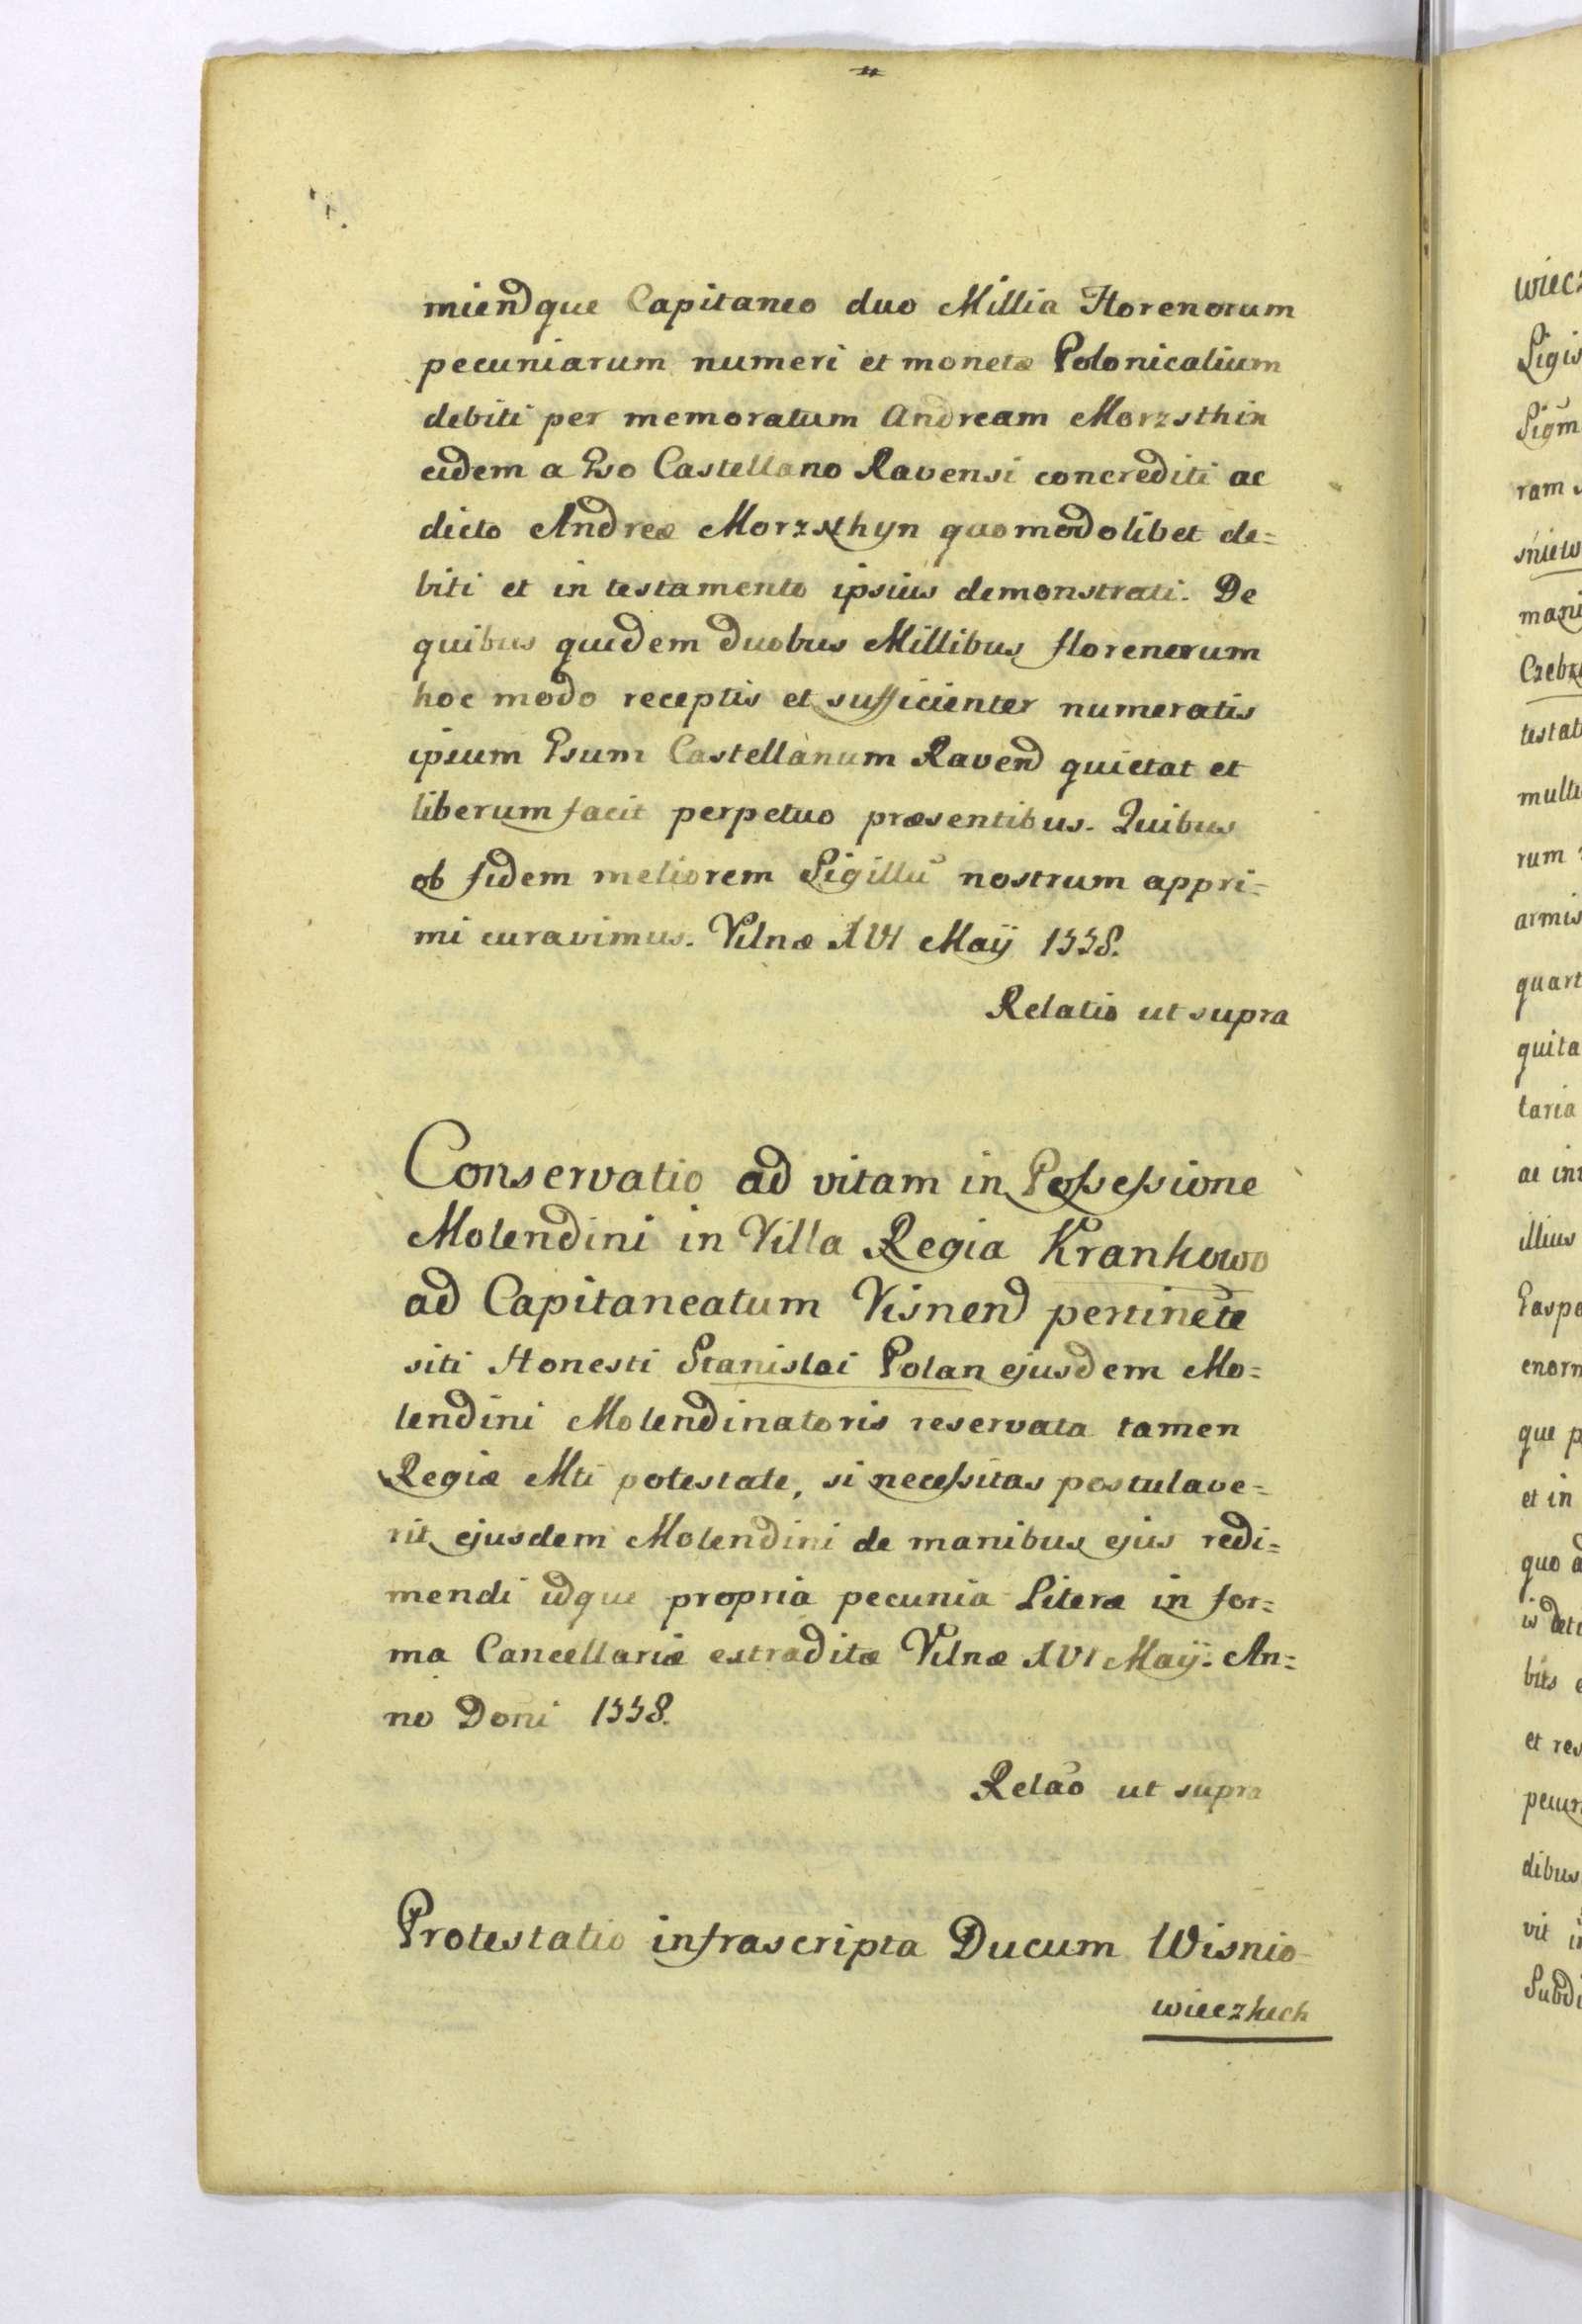 miend que Capitaneo duo Millia Florenorum
pecuniarum numeri et monetæ Polonicalium
debiti per memoratum Andream Morzsthin
eidem a Pso Castellano Ravensi concrediti ac
dicto Andreæ Morzsthyn quomodolibet de=
biti et in testamento ipsius demonstrati. De
quibus quidem duobus Millibus florenorum
hoc modo receptis et sufficienter numeratis
ipsum Psum Castellanum Ravend quietat et
liberum facit perpetuo præsentibus. Quibus
ob fidem meliorem Sigillū nostrum appri=
mi curavimus. Vilnæ XVI Maÿ 1558.
Relatio ut supra
Conservatio ad vitam in Possessione
Molendini in Villa Regia Krankowo
ad Capitaneatum Visnend pertinēte
siti Honesti Stanislai Polan ejusdem Mo=
lendini Molendinatoris reservata tamen
Regiæ Mti potestate, si necessitas postulave=
rit ejusdem Molendini de manibus ejus redi=
mendi idque propria pecunia Literæ in for=
ma Cancellariæ extraditæ Vilnæ XVI Maÿ. An=
no Doni 1558.
Relaō ut supra
Protestatio infrascripta Ducum Wisnio
wieczkich
wiecz
Sigis
ram
śniew
mani
testat
multi
rum
armis
quart
quita
taria
ac int
illius
Gaspa
enorm
que p
et in
quo a
et res
pecun
dibus
vit
Subdi